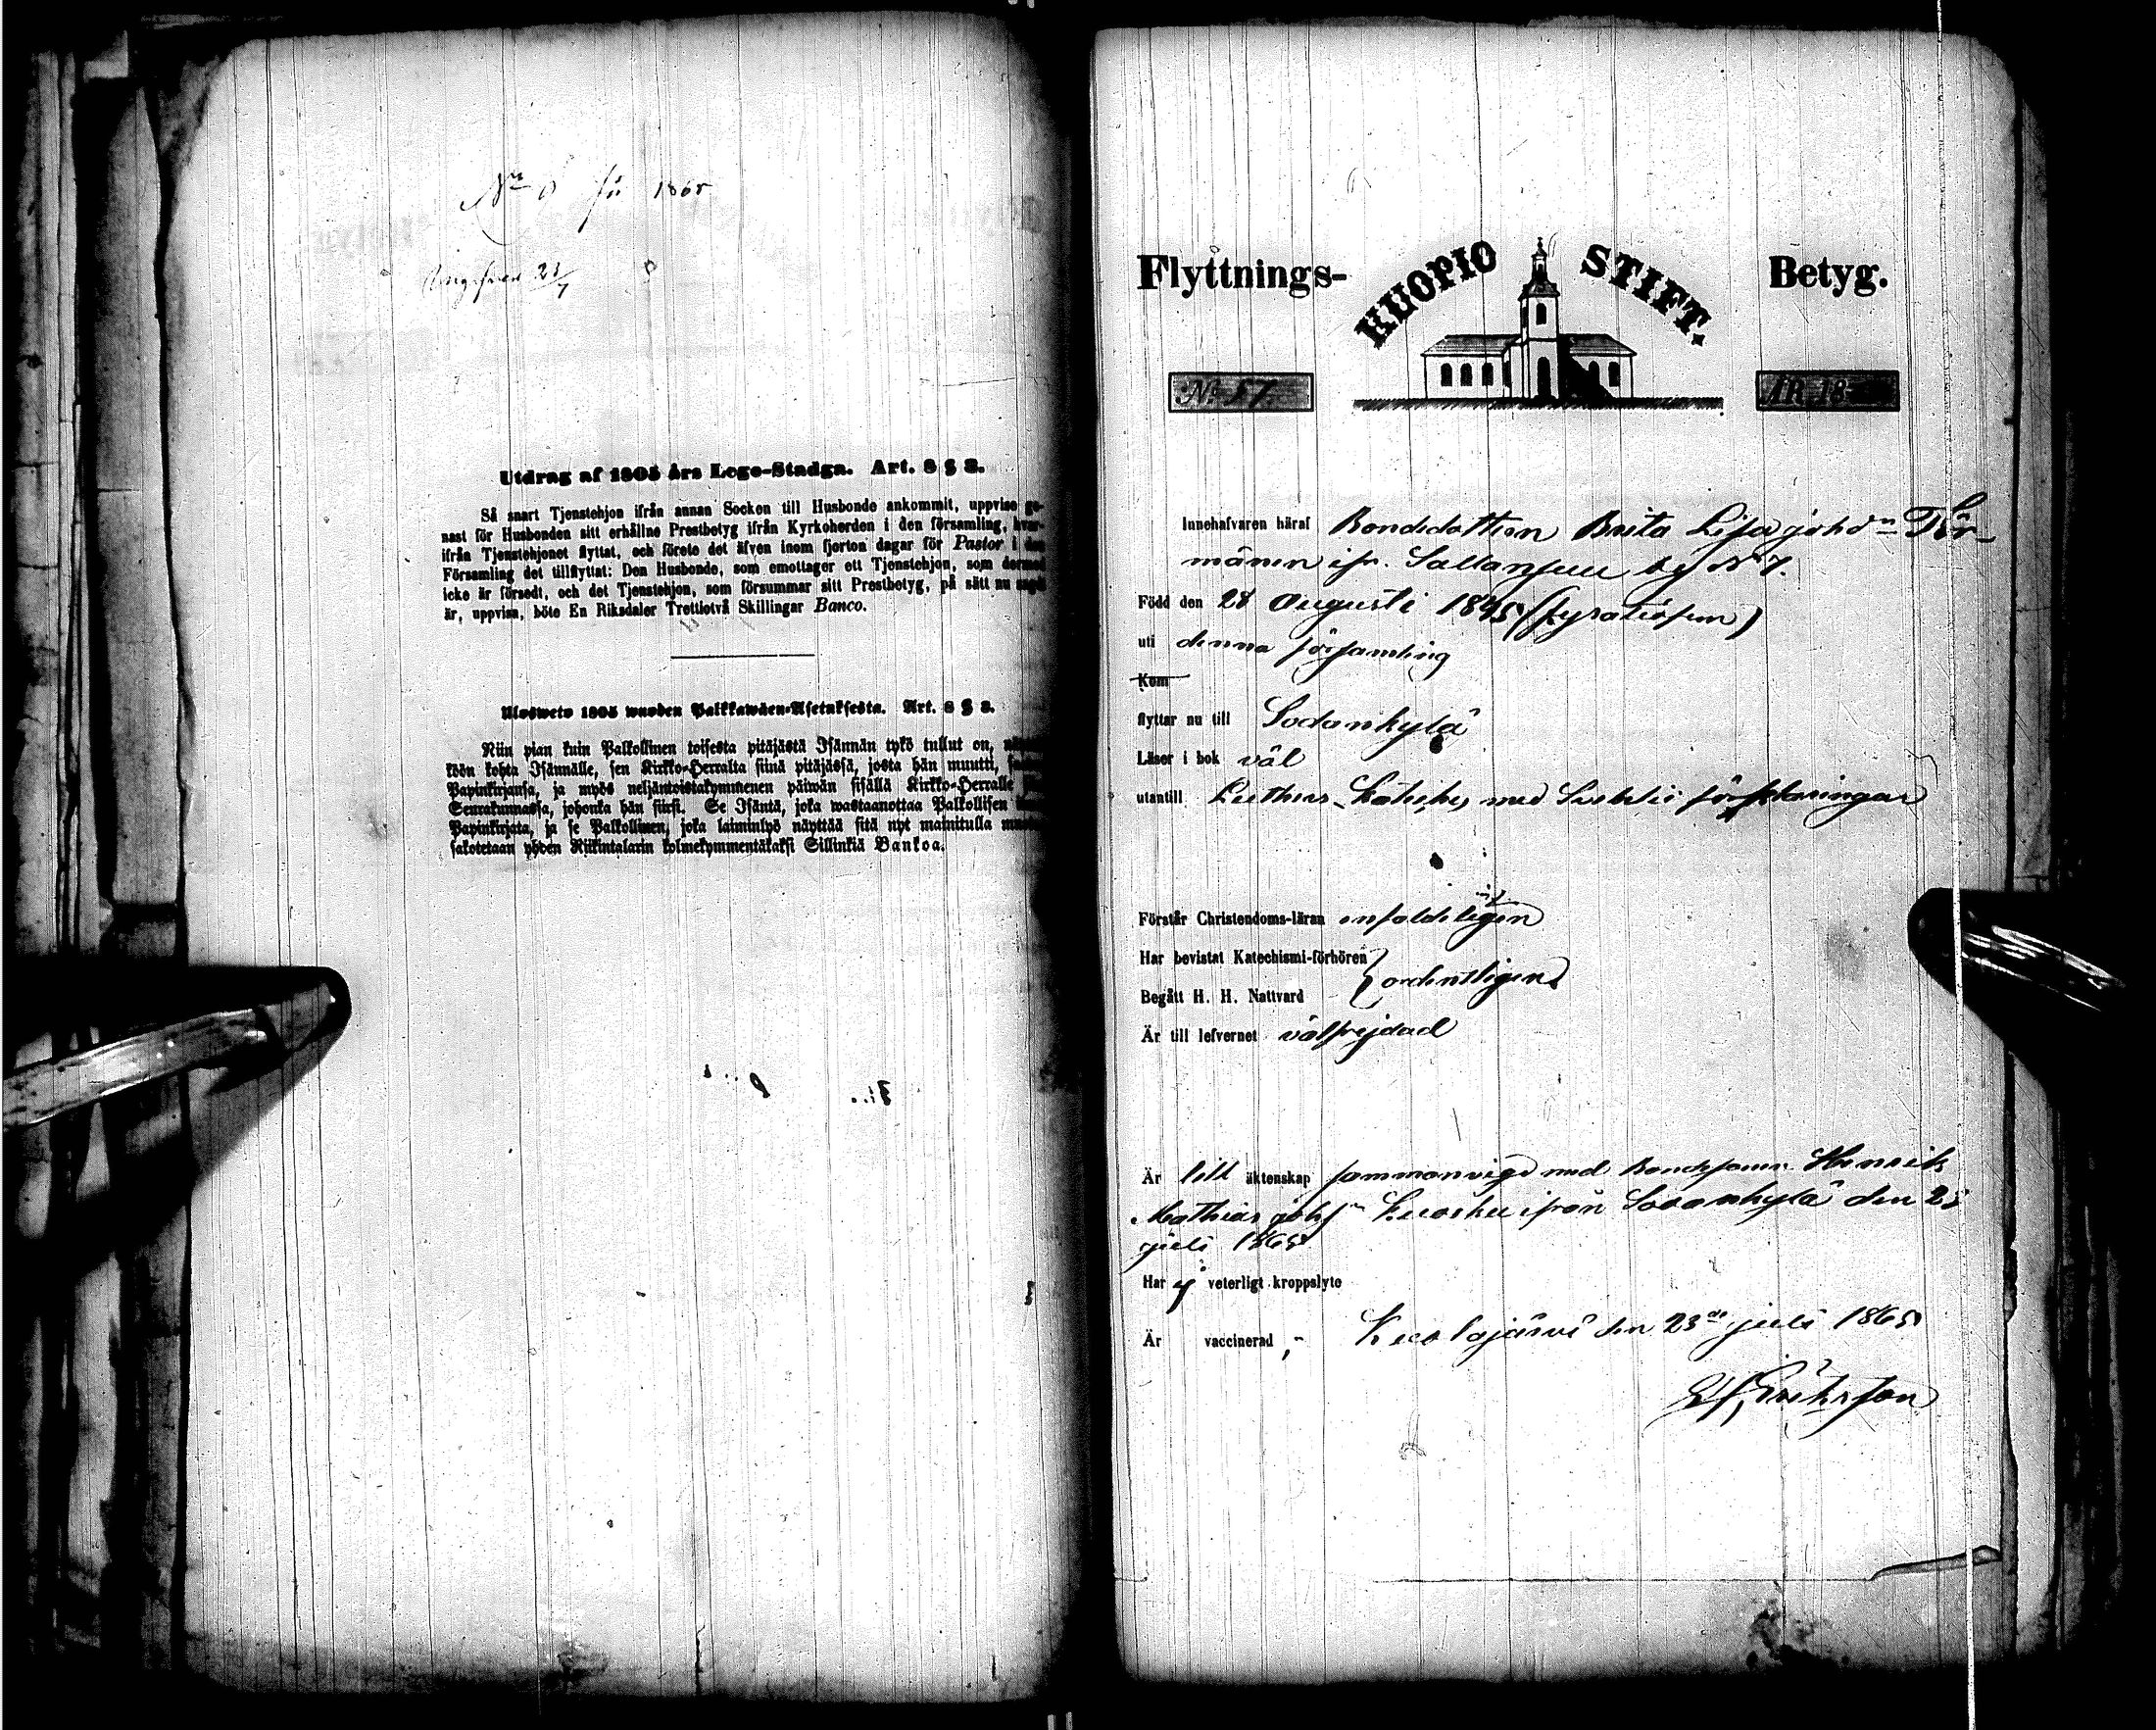 No 8 för 1865
Uppvisad 23/7
Utdrag af 1805 års Lego-Stadga. Art. 8 § 3.
Så snart Tjenstehjon ifrån annan Socken till Husbonde ankommit, uppvise ge-
nast för Husbonden sitt erhållne Prestbetyg ifrån Kyrkoherden i den församling, hvar-
ifrån Tjenstehjonet flyttat, och förete det äfven inom fjorton dagar för Pastor i den
Församling det tillflyttat: Den Husbonde, som emottager ett Tjenstehjon, som dermed
icke är försedt, och det Tjenstehjon, som försummar sitt Prestbetyg, på sätt nu sagdt
är, uppvisa, böte En Riksdaler Trettiotvå Skillingar Banco.
Ulosweto 1805 wuoden Palkkawäen-Asetuksesta. Art. 8 § 3.
Niin pian kuin Palkollinen toisesta pitäjästä Isännän tykö tullut on,
köön kohta Isännälle, sen Kirkko-Herralta siinä pitäjässä, josta hän muutti,
Papinkirjansa, ja myös neljäntoistakymmenen päiwän sisällä Kirkko-Herralle
Seurakunnassa, johonka hän siirsi. Se Isäntä, joka wastaanottaa Palkollisen
Papinkirjata, ja se Palkollinen, joka laiminlyö näyttää sitä nyt mainitulla
sakotetaan yhden Riikintalarin kolmekymmentäkaksi Sillinkiä Bankoa.
Flyttnings- KUOPIO STIFT. Betyg.
No 57. ÅR 18
Innehafvaren häraf Bondedottren Brita Lisa Johdn Tör-
mänen ifr. Sallansuu by No 7.
Född den 28 Augusti 1845 (fyratiofem)
uti denna församling
Kom
flyttar nu till Sodankylä
Läser i bok väl
utantill Luthers Kateches med Svebelii förklaringar
Förstår Christendoms-läran enfaldeligen
Har bevistat Katechismi-förhören
Begått H. H. Nattvard } ordentligen
Är till lefvernet välfrejdad
Är till äktenskap sammanvigd med Bondesonen Henrik
Mathias Johsn Kuosku ifrån Sodankylä den 23
juli 1865
Har ej veterligt kroppslyte
Är vaccinerad, - Kuolajärvi den 23de juli 1865